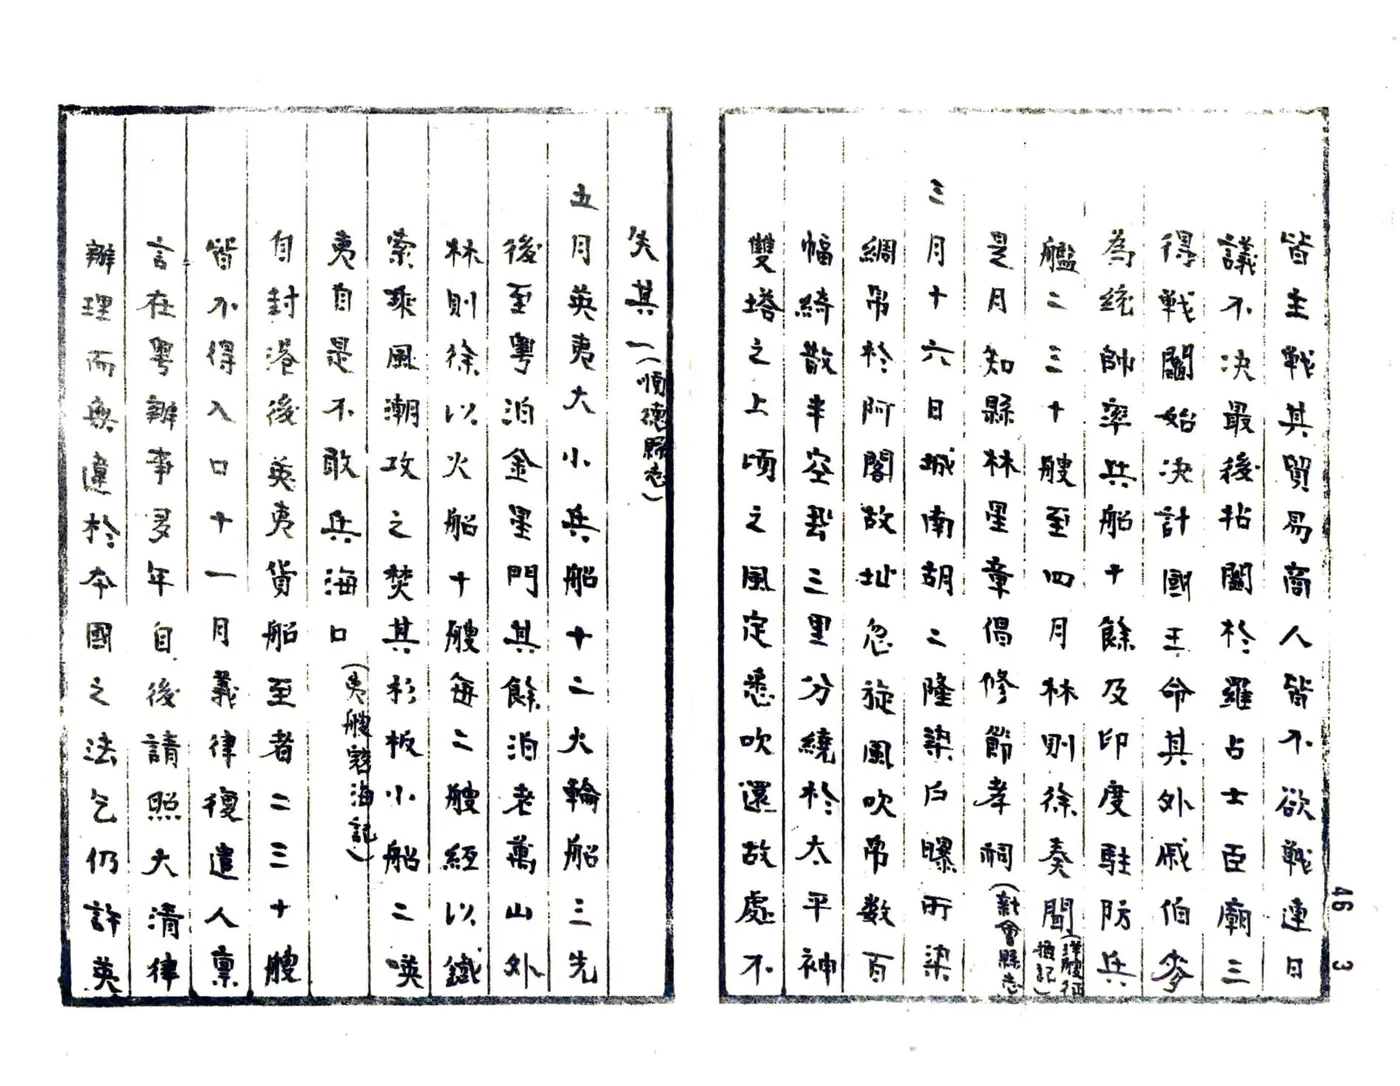 皆主戰其貿易商人皆不欲戰連日
議不決最後拈鬮於羅占士臣廟三
得戰鬮始決計國王命其外戚伯麥
為統帥率兵船十餘及印度駐防兵
艦二三十艘至四月林則徐奏聞
是月知縣林星章倡修節孝祠(新會縣志)
三月十六日城南胡二隆染白曝所染
綢帛於阿閣故址忽旋風吹帛數百
幅綺散半空裂三里分繞於太平神
雙塔之上頃之風定悉吹還故處不
失其一(順德縣志)
五月英夷大小兵船十二火輪船三先
後至粵泊金星門其餘泊老萬山外
林則徐以火船十艘每二艘經以鐵
索乘風潮攻之焚其杉板小船二㖽
夷自是不敢兵海口(夷艘寇海記)
自封港後英夷貨船至者二三十艘
皆不得入口十一月義律復遣人稟
言在粵辦事多年自後請照大清律
辦理而無違於本國之法乞仍許英
46 3